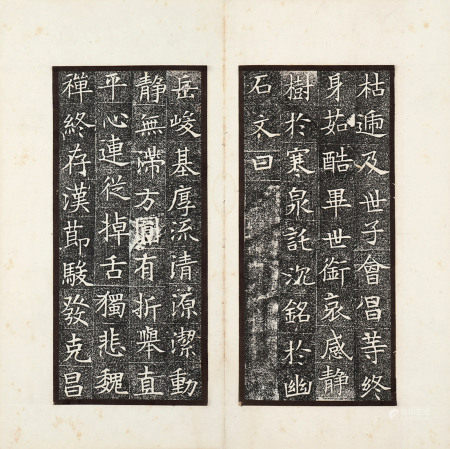 枯及世子會昌等終
身茹酷畢世銜哀感静
樹於寒泉託沉銘於幽
石文曰
岳峻基厚流清源潔動
静無滯方圓有折舉直
平心連從掉舌獨悲魏
禪終存漢節駿發克昌